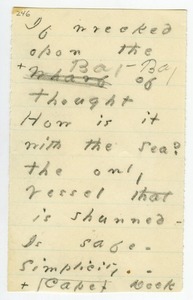 246
If wrecked
opon the
+ Bar - Bay
Wharf of
thought
How is it
with the Sea?
the only
Vessel that
is shunned
Is safe -
Simplicity -
+ (Cape)